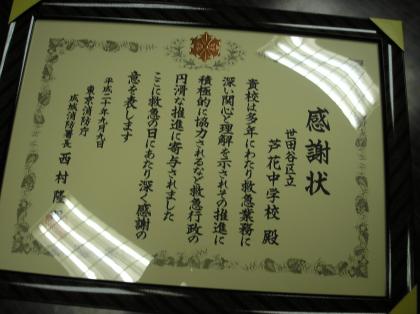 感謝状
世田谷区立
芦花中学校 殿
貴校は多年にわたり救急業務に
深い関心と理解を示されその推進に
積極的に協力されるなど救急行政の
円滑な推進に寄与されました
ここに救急の日にあたり深く感謝の
意を表します
平成二十年九月九日
東京消防庁
成城消防署長 西村隆